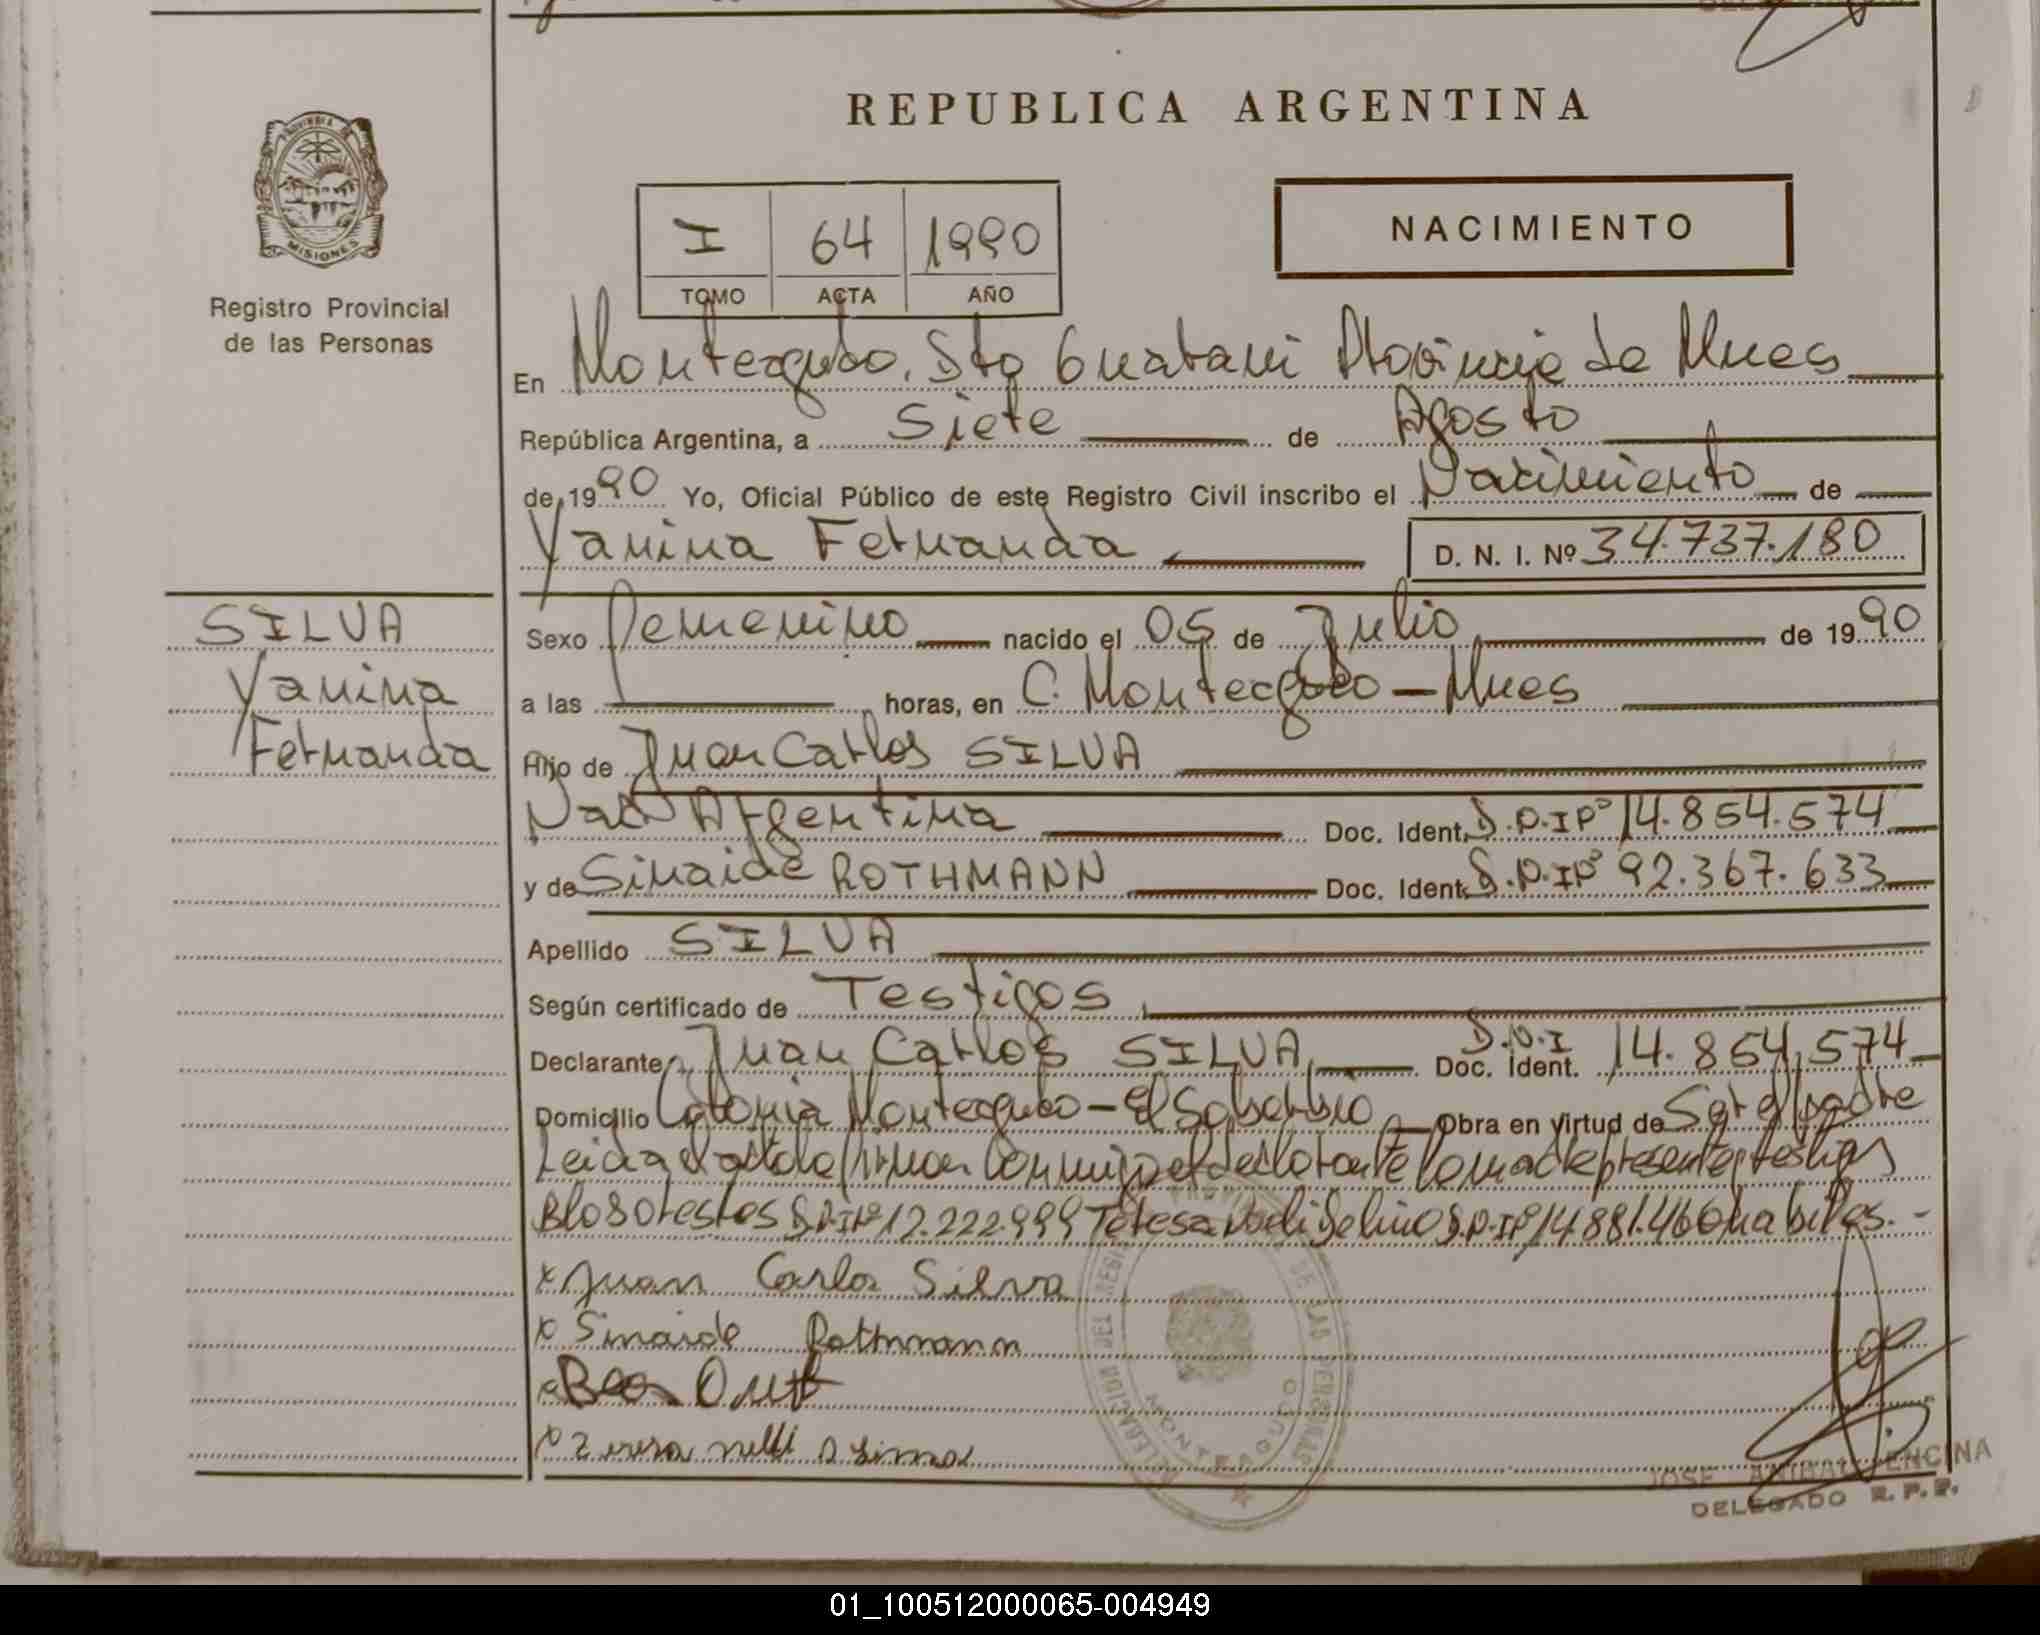 REPUBLICA ARGENTINA
PROVINCIA DE
MISIONES
Registro Provincial
de las Personas
I 64 1990
TOMO ACTA AÑO
NACIMIENTO
En Monteagudo. Dto Guarani Provincia de Mnes
República Argentina, a Siete de Agosto
de 1990 Yo, Oficial Público de este Registro Civil inscribo el Nacimiento de
Yanina Fernanda D. N. I. Nº 34.737.180
SILVA
Yanina
Fernanda
Sexo Femenino nacido el 05 de Julio de 1990
a las horas, en C. Monteagudo - Mnes
Hijo de Juan Carlos SILVA
Nac Argentina Doc. Ident. D.N.I Nº 14.854.574
y de Sinaide ROTHMANN Doc. Ident. D.N.I Nº 92.367.633
Apellido SILVA
Según certificado de Testigos
Declarante Juan Carlos SILVA Doc. Ident. D.N.I 14.854.574
Domicilio Colonia Monteagudo - El Soberbio Obra en virtud de Ser el padre
Leida el acta la firman conmigo el declarante la madre presente testigos
D.N.I Nº 12.222.999 Teresa D.N.I Nº 14.881.460 habiles. -
x Juan Carlos Silva
x Sinaide Rothmann
DELEGACION DEL REGISTRO DE LAS PERSONAS
MONTEAGUDO
JOSE ANIBAL ENCINA
DELEGADO R. P. P.
01_100512000065-004949